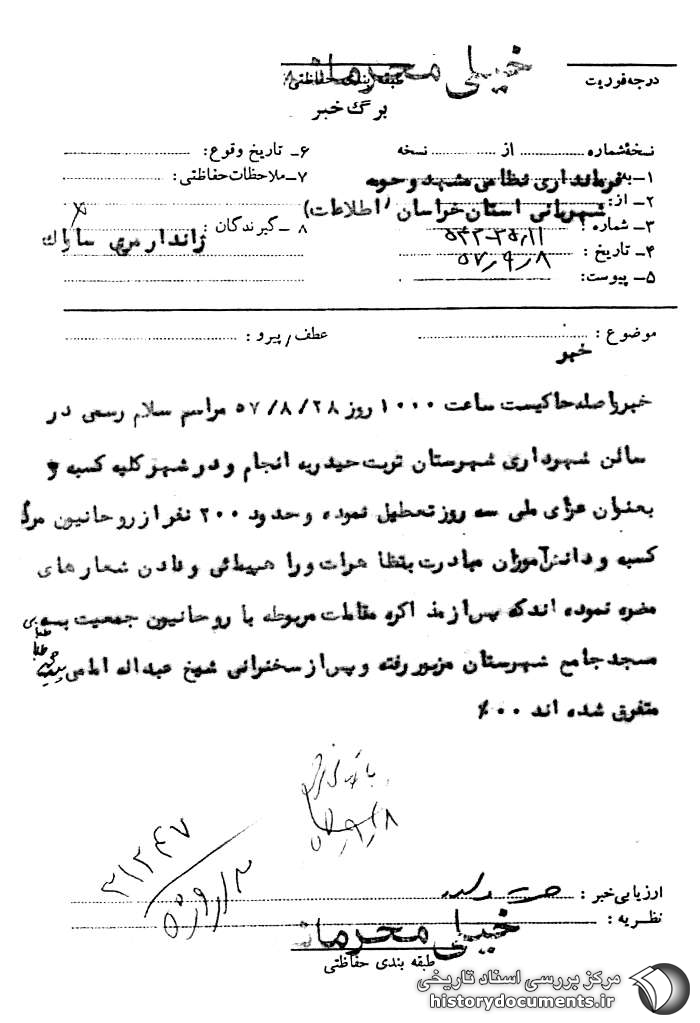 خیلی محرمانه
درجه فوریت
طبقه بندی حفاظتی
برگ خبر
نسخهٔ شماره ........ از ........ نسخه
۱ـ به: فرمانداری نظامی مشهد و حومه
۲ـ از: شهربانی استان خراسان (اطلاعات)
۳ـ شماره: ۱۱ر۳۵-۵۴۳
۴ـ تاریخ: ۸ر۹ر۵۷
۵ـ پیوست:
۶ـ تاریخ وقوع:
۷ـ ملاحظات حفاظتی:
۸ـ گیرندگان: ژاندارمری ساواک
موضوع: خبر
عطف/پیرو:
خبرواصله حاکیست ساعت ۱۰۰۰ روز ۵۷/۸/۲۸ مراسم سلام رسمی در
سالن شهرداری شهرستان تربت حیدریه انجام و در شهر کلیه کسبه و
بعنوان عزای ملی سه روز تعطیل نموده وحدود ۲۰۰ نفر از روحانیون
کسبه و دانش آموزان مبادرت بتظاهرات و راهپیمائی و دادن شعارهای
مضره نموده اند که پس از مذاکره مقامات مربوطه با روحانیون جمعیت بسوی
مسجد جامع شهرستان مزبور رفته و پس از سخنرانی شیخ عبداله امامی
متفرق شده اند ۰۰٪
۲۱۲۴۷
ارزیابی خبر: صحت دارد
نظریه:
خیلی محرمانه
طبقه بندی حفاظتی
مرکز بررسی اسناد تاریخی
historydocuments.ir